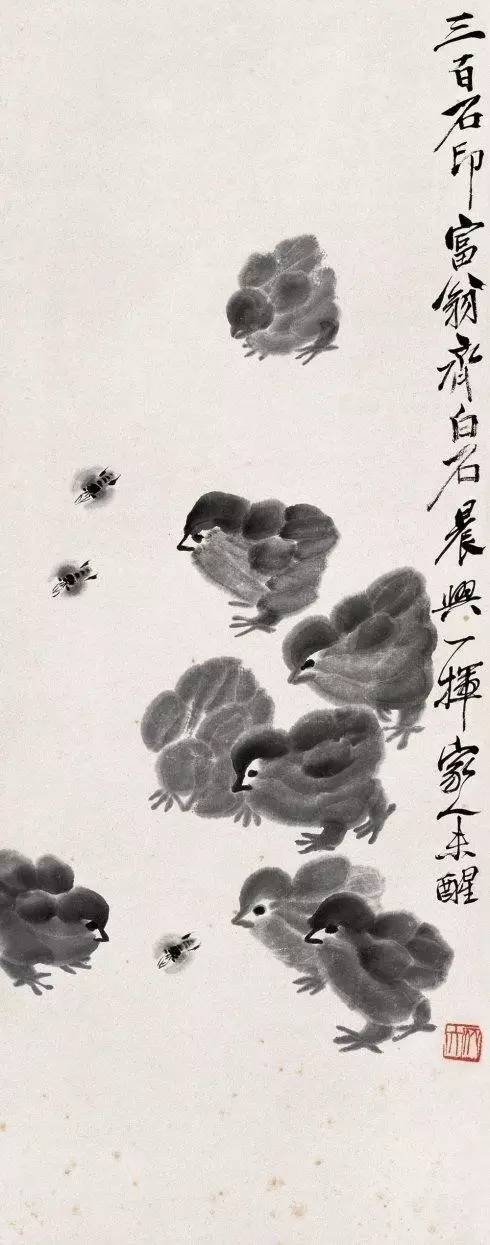 三百石印富翁齊白石晨興一揮家人未醒